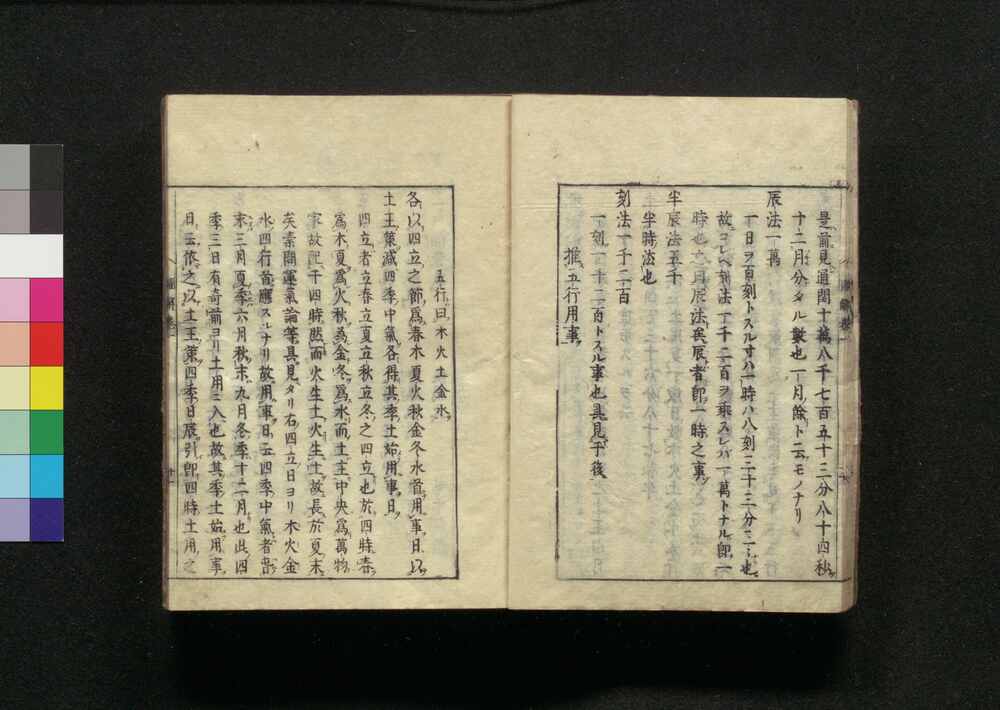 是前見通閏十萬八千七百五十三分八十四秒
十二月分タル數也一月餘ト云モノナリ
辰法一萬
一日ヲ百刻トスル寸ハ一時ハ八刻三十三分二ミ也
故コレヘ刻法一千二百ヲ乗スレバ一萬トナル即一
時也之月辰法矣辰者即一時之事
半辰法五千
半時法也
刻法一千二百
一刻一千二百トスル事也具見于後
推五行用事
五行曰木火土金水
各以四立之節爲春木夏火秋金冬水首用事日以
土王策减四季中氣各得其季土始用事日
四立者立春立夏立秋立冬之四立也於四時春
爲木夏爲火秋爲金冬爲水而土主中央爲萬物
宗故配干四時然而火生土火生土故長於夏末
矣素問運氣論等具見タリ右四立日ヨリ木火金
水四行首應スルナリ故用事日云四季中氣者春
末三月夏季六月秋末九月冬季十二月也此四
季三日有奇前ヨリ土用ニ入也故其季土始用事
日云依之以土王策四季日辰引即四時土用之